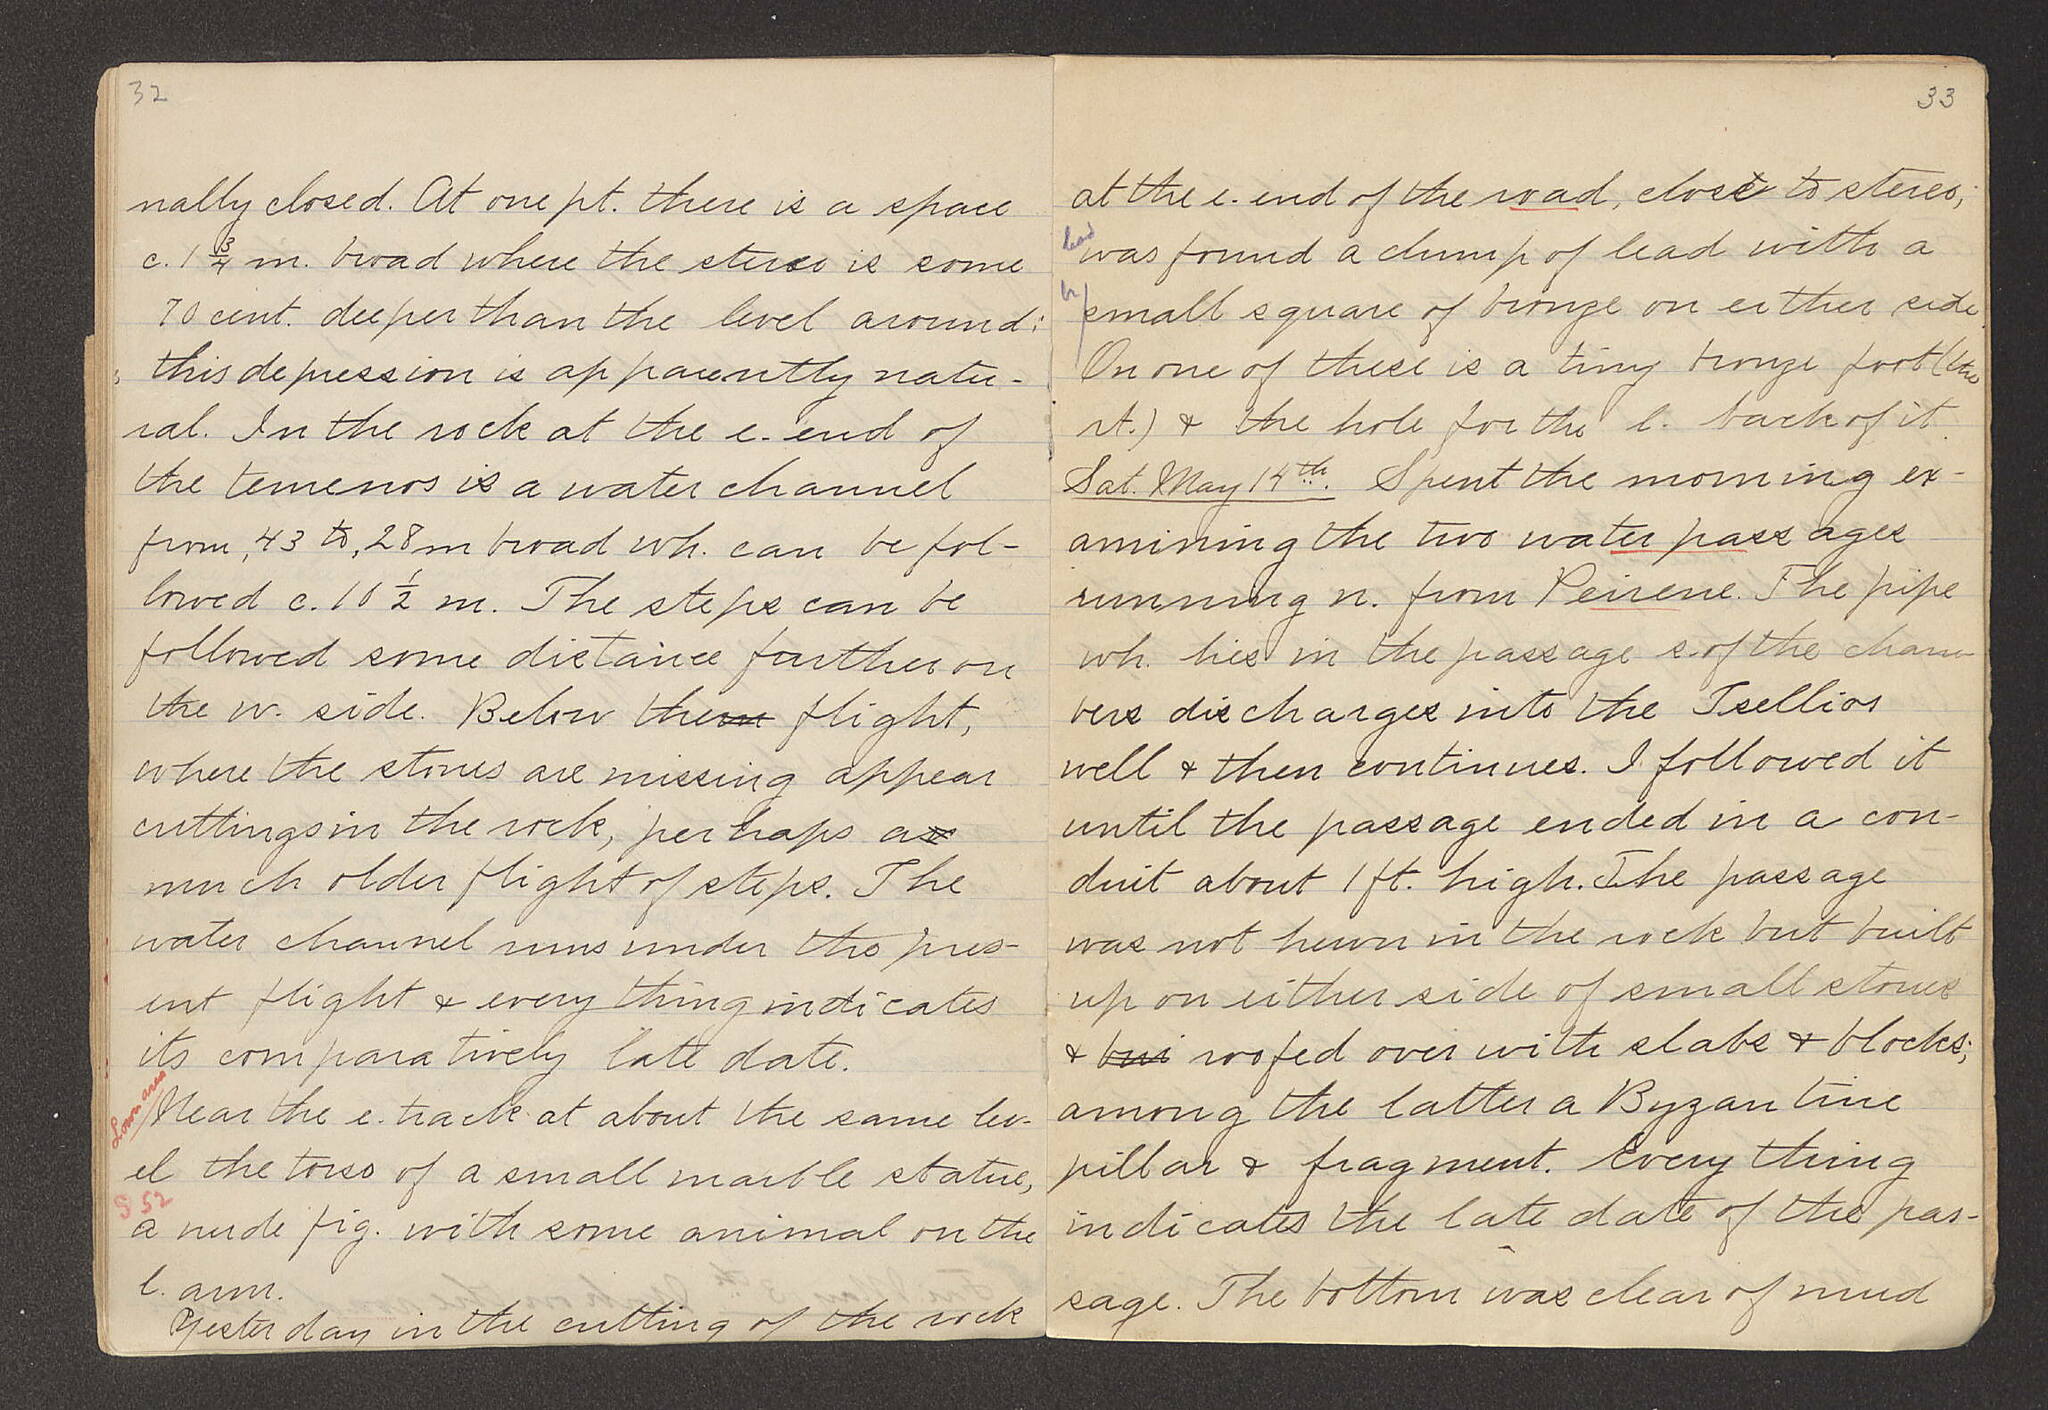 32
nally closed. At one pt. there is a space
c. 1 3/4 m. broad where the stereo is some
70 cent. deeper than the level around:
this depression is apparently natu-
ral. In the rock at the e. end of
the temenos is a water channel
from ,43 to ,28 m broad wh. can be fol-
lowed c. 10 1/2 m. The steps can be
followed some distance further on
the w. side. Below them flight,
where the stones are missing appear
cuttings in the rock, perhaps as
much older flight of steps. The
water channel runs under the pres-
ent flight & everything indicates
its comparatively late date.
Near the e. track at about the same lev-
el the torso of a small marble statue,
S 52
a nude fig. with some animal on the
l. arm.
Yesterday in the cutting of the rock
33
at the e. end of the road, close to stereo;
lead
was found a clump of lead with a
small square of bronze on either side.
On one of these is a tiny bronze foot (the
rt.) & the hole for the l. back of it.
Sat. May 14th. Spent the morning ex-
amining the two water passages
running n. from Peirene. The pipe
wh. lies in the passage s. of the cham-
bers discharges into the Tsellios
well & then continues. I followed it
until the passage ended in a con-
duit about 1 ft. high. The passage
was not hewn in the rock but built
up on either side of small stones
& bui roofed over with slabs & blocks;
among the latter a Byzantine
pillar & fragment. Everything
indicates the late date of the pas-
sage. The bottom was clear of mud